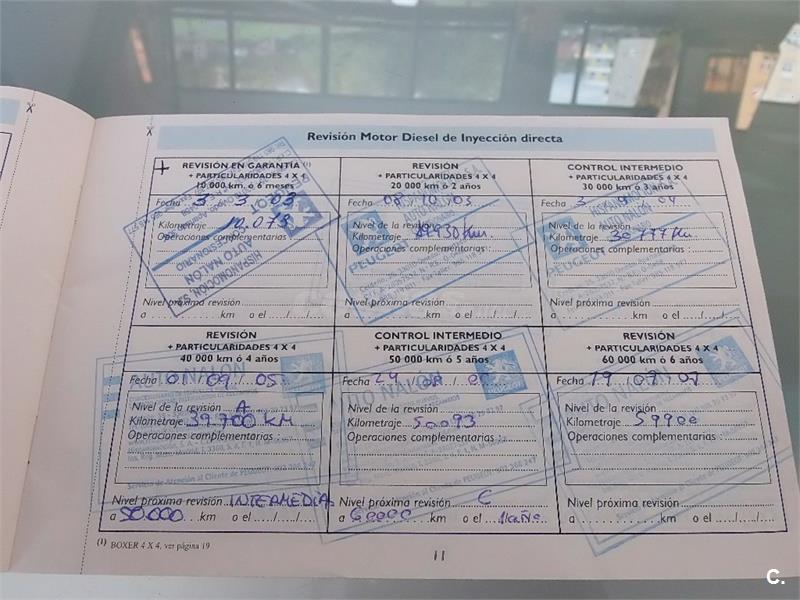 Revisión Motor Diesel de Inyección directa
REVISIÓN EN GARANTÍA (1)
+ PARTICULARIDADES 4 X 4
10 000 km ó 6 meses
Fecha 3 . 3 . 03
Kilometraje 10.073
Operaciones complementarias :
Nivel próxima revisión
a km o el ..../..../....
REVISIÓN
+ PARTICULARIDADES 4 X 4
20 000 km ó 2 años
Fecha 08 / 10 / 03
Nivel de la revisión
Kilometraje
Operaciones complementarias :
Nivel próxima revisión
a km o el ..../..../....
CONTROL INTERMEDIO
+ PARTICULARIDADES 4 X 4
30 000 km ó 3 años
Fecha 3
Nivel de la revisión
Kilometraje 30.777 Km.
Operaciones complementarias :
Nivel próxima revisión
a km o el ..../..../....
REVISIÓN
+ PARTICULARIDADES 4 X 4
40 000 km ó 4 años
Fecha 01 / 09 / 05
Nivel de la revisión A
Kilometraje 39.700 KM
Operaciones complementarias :
Nivel próxima revisión INTERMEDIA
a 50.000 km o el ..../..../....
CONTROL INTERMEDIO
+ PARTICULARIDADES 4 X 4
50 000 km ó 5 años
Fecha 24
Nivel de la revisión
Kilometraje 50093
Operaciones complementarias :
Nivel próxima revisión C
a 60000 km o el 1 año
REVISIÓN
+ PARTICULARIDADES 4 X 4
60 000 km ó 6 años
Fecha 19 / 07 / 07
Nivel de la revisión
Kilometraje 59900
Operaciones complementarias :
Nivel próxima revisión
a km o el ..../..../....
AUTO NALÓN
PEUGEOT
(1) BOXER 4 X 4, ver página 19
11
C.